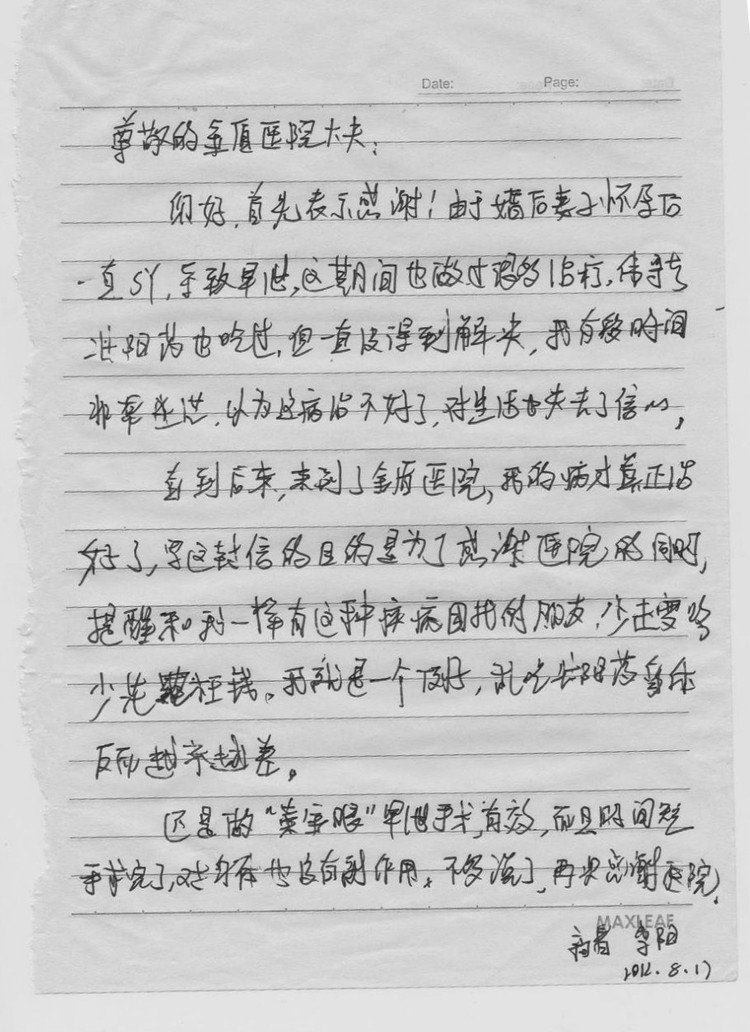 Date: Page:
尊敬的金盾医院大夫:
您好,首先表示感谢!由于婚后妻子怀孕后
一直SY,导致早泄,这期间也做过很多治疗,
壮阳药也吃过,但一直没得到解决,我有段时间
非常迷茫,以为这病治不好了,对生活也失去了信心,
直到后来,来到了金盾医院,我的病才真正治
好了,写这封信的目的是为了感谢医院的同时,
提醒和我一样有这种疾病困扰的朋友,少走弯路
少花冤枉钱。我就是一个例子,乱吃壮阳药
反而越来越差。
还是做"黄金眼"早泄手术,有效,而且时间短
手术完了,对身体也没有副作用。不多说了,再次感谢医院.
MAXLEAF
患者 李阳
2012.8.17